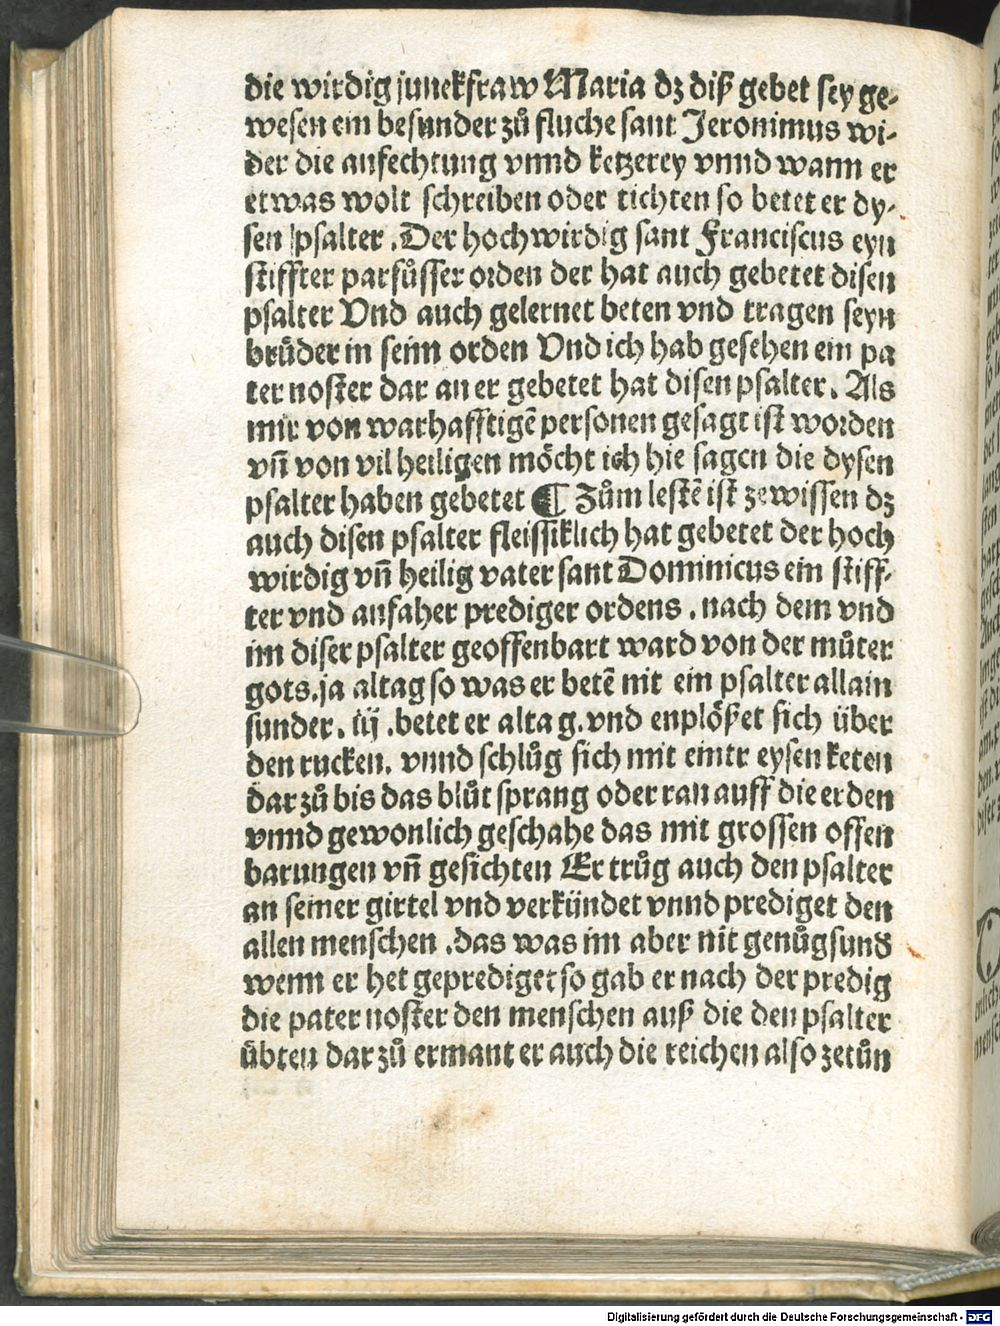 die wirdig junckfraw Maria dz diß gebet sey ge-
wesen ein besunder zů fluche sant Jeronimus wi-
der die anfechtung vnnd ketzerey vnnd wann er
etwas wolt schreiben oder tichten so betet er dy-
sen psalter .Der hochwirdig sant Franciscus eyn
stiffter parfůsser orden der hat auch gebetet disen
psalter Vnd auch gelernet beten vnd tragen seyn
brůder in seinn orden Vnd ich hab gesehen ein pa
ter noster dar an er gebetet hat disen psalter. Als
mir von warhafftigē personen gesagt ist worden
vn̄ von vil heiligen möcht ich hie sagen die dysen
psalter haben gebetet ¶ Zům lestē ist zewissen dz
auch disen psalter fleissiklich hat gebetet der hoch
wirdig vn̄ heilig vater sant Dominicus ein stiff-
ter vnd anfaher prediger ordens . nach dem vnd
im diser psalter geoffenbart ward von der můter
gots. ja altag so was er betē nit ein psalter allain
sunder . iij .betet er altag. vnd enplößet sich über
den rucken. vnnd schlůg sich mit einer eysen keten
dar zů bis das blůt sprang oder ran auff die erden
vnnd gewonlich geschahe das mit grossen offen
barungen vn̄ gesichten Er trůg auch den psalter
an seiner girtel vnd verkündet vnnd prediget den
allen menschen .das was im aber nit genůgsund
wenn er het geprediget so gab er nach der predig
die pater noster den menschen auß die den psalter
übten dar zů ermant er auch die reichen also zetůn
Digitalisierung gefördert durch die Deutsche Forschungsgemeinschaft - DFG